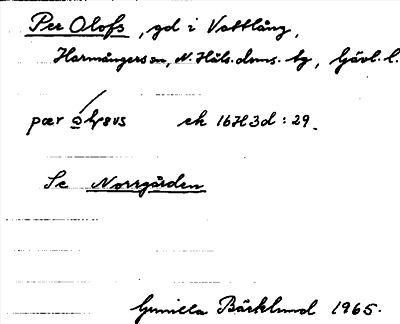 Per Olofs, gd i Vattlång,
Harmångers sn, N. Häls. doms. tg, Gävl. l.
pær ek 16H3d:29.
Se Norrgården
Gunilla Bäcklund 1965.